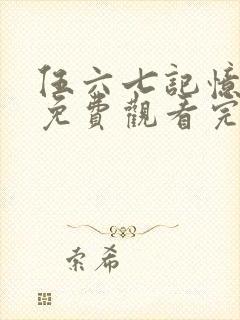 伍六七記憶
免費觀看完
索希